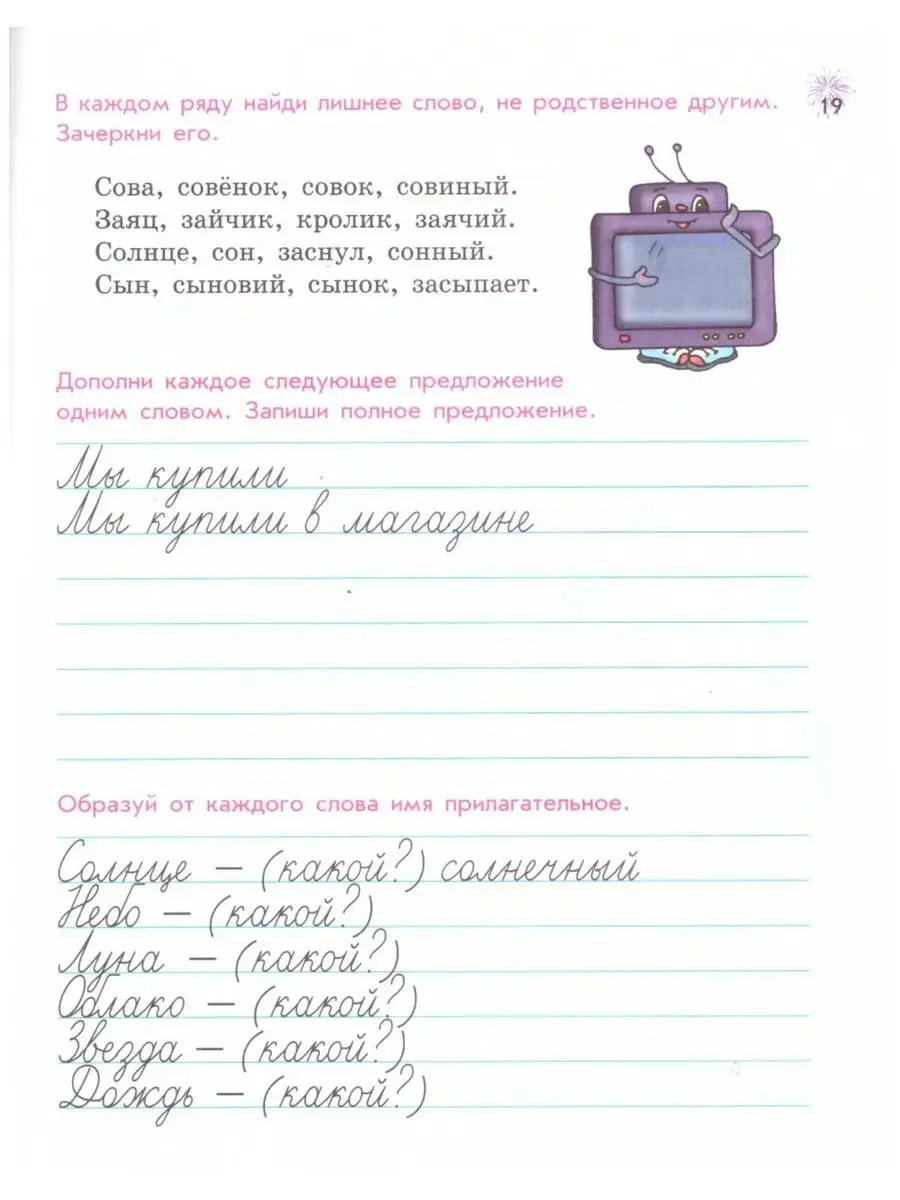 19
В каждом ряду найди лишнее слово, не родственное другим.
Зачеркни его.
Сова, совёнок, совок, совиный.
Заяц, зайчик, кролик, заячий.
Солнце, сон, заснул, сонный.
Сын, сыновий, сынок, засыпает.
Дополни каждое следующее предложение
одним словом. Запиши полное предложение.
Мы купили
Мы купили в магазине
Образуй от каждого слова имя прилагательное.
Солнце — (какой?) солнечный
Небо — (какой?)
Луна — (какой?)
Облако — (какой?)
Звезда — (какой?)
Дождь — (какой?)